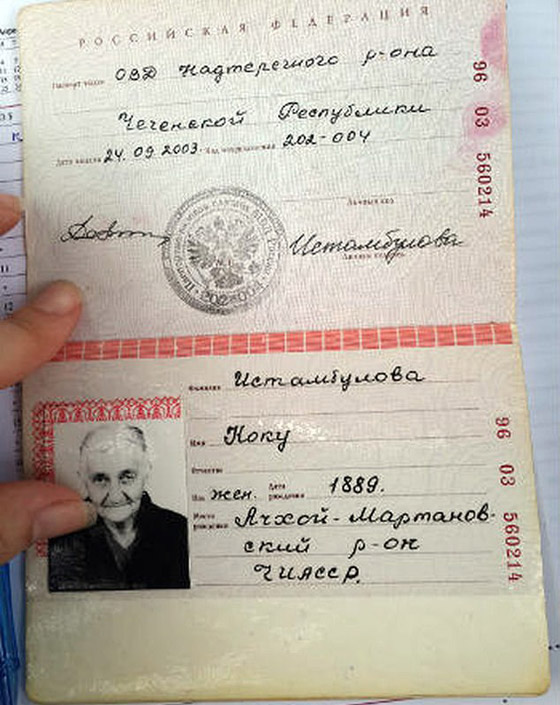 РОССИЙСКАЯ ФЕДЕРАЦИЯ
Паспорт выдан ОВД Надтеречного р-она
Чеченской Республики
Дата выдачи 24.09.2003. Код подразделения 202-004
Личный код
Истамбулова
Личная подпись
202-004
96 03 560214
Фамилия Истамбулова
Имя Коку
Отчество
Пол жен. Дата рождения 1889.
Место рождения Ачхой-Мартанов-
ский р-он
ЧИАССР.
96 03 560214